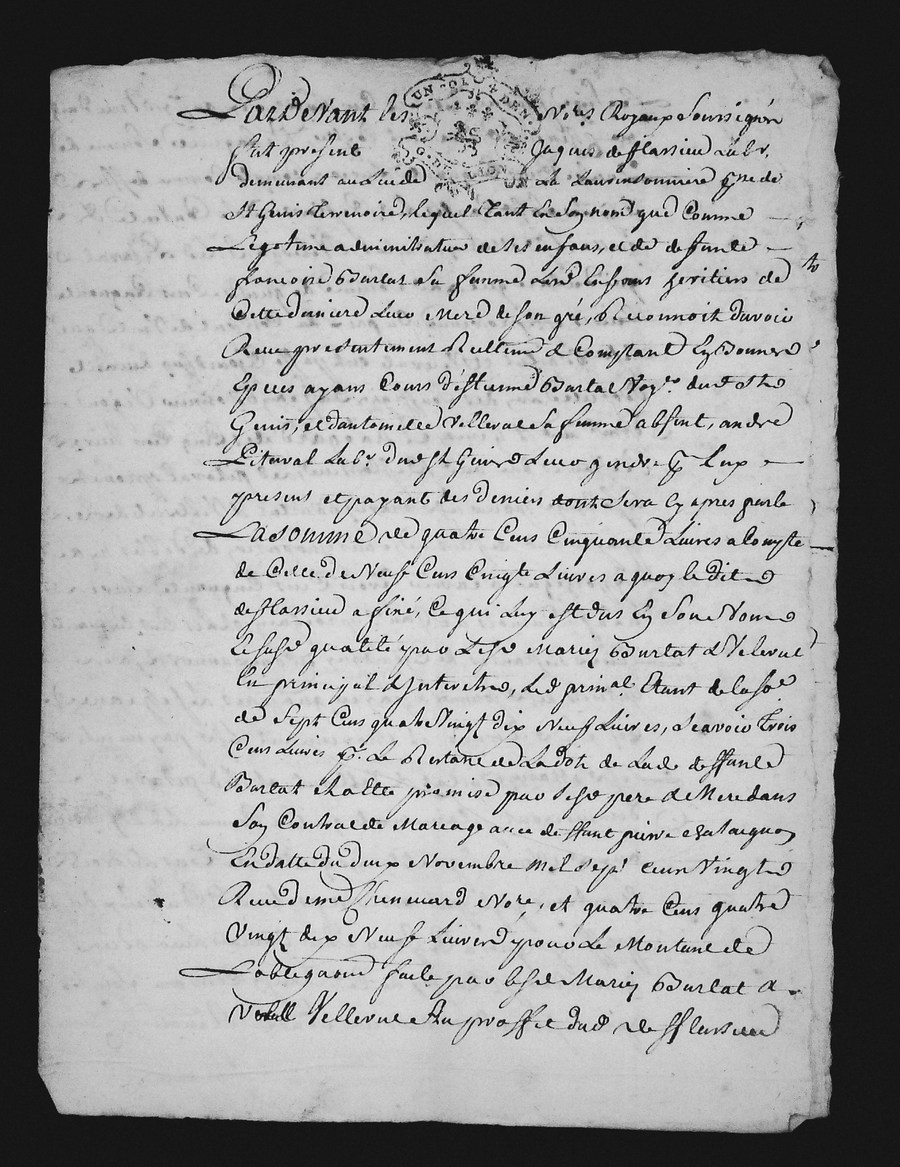 Pardevant les Nores Royaux Soussignés
fut present Jaques deflassieu Labr.
demeurant au Lieu de La Laurensonniere psse de
St Genis Terrenoire, lequel tant En Son nom que Comme
Legetime administrateur de ses enfans, et de deffunte
francoise Burlat Sa femme Lesd. Enfans heritiers de
Cette derniere Leur Mere de son gré, Reconnoit d'avoir
Receu presentement Reellement & Comptant En Bonnes
Especes ayans Cours d'Estienne Burlat Voyr. dud. St
Genis, et d'antoinette Vellerut Sa femme absent, andré
Pitaval Labr. dud. St Genis Leur gendre pr Eux
present et payant des deniers dont Sera Cy apres parlé
La somme de quatre Cens Cinquante Livres a Compte
de Celle de Neuf Cens Vingt Livres a quoy le dit
deflassieu a finé, Ce qui Luy est dus En Son Nom
Le susd. qualité par Lesd. Mariez Burlat & Velerut
En principal & Interets, Led. prinal. Etant de la Soe
de Sept Cens quatre Vingt dix Neuf Livres, Scavoir Trois
Cens Livres pr. Le Restant de La dot de Lade. deffunte
Burlat a Elle promise par Sesd. pere & Mere dans
Son Contrat de Mariage avec deffunt pierre
En datte du deux Novembre Mil Sept Cens Vingt
Receu de me Chenevard Nore, et quatre Cens quatre
Vingt dix Neuf Livres pour Le Montant de
L'obligaon faite par lesd. Mariez Burlat &
Vellerut Au proffit dud. deflassieu